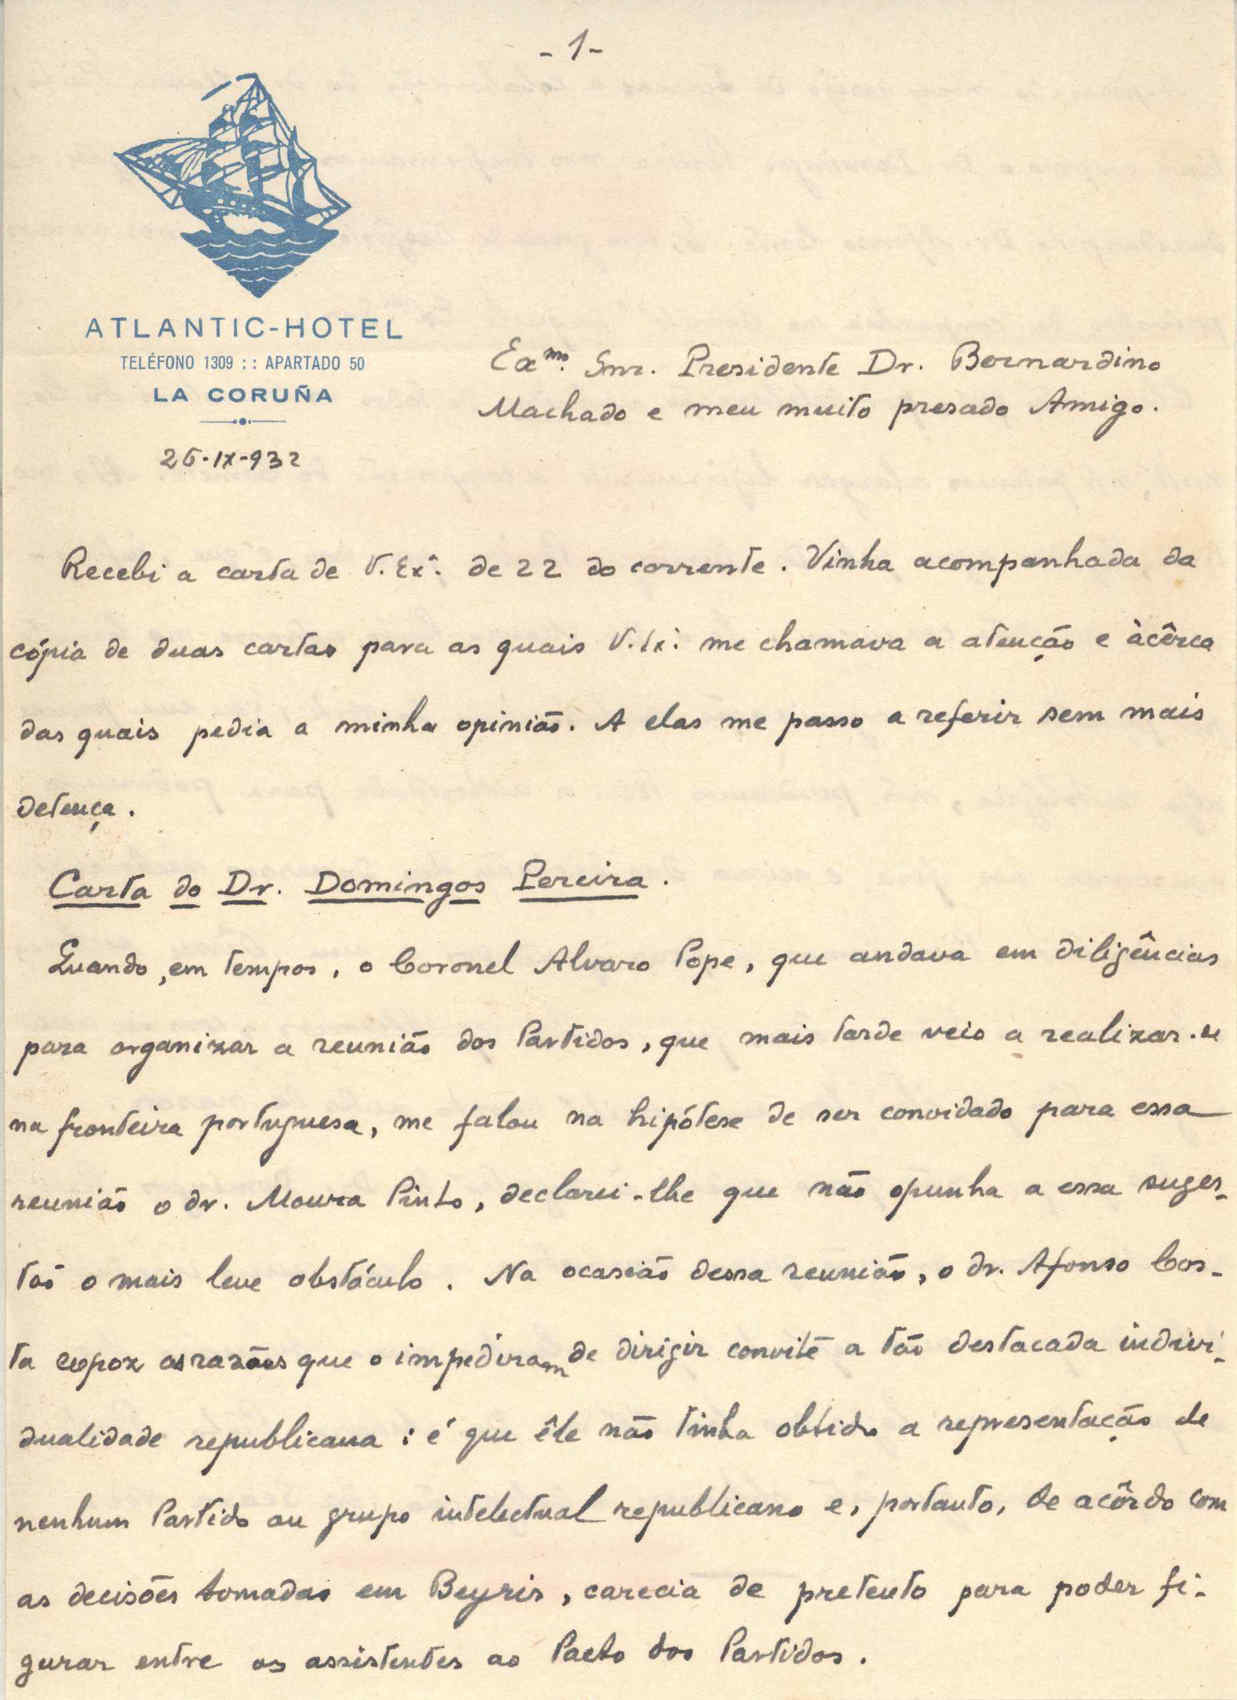 -1-
ATLANTIC-HOTEL
TELÉFONO 1309 :: APARTADO 50
LA CORUÑA
26-IX-932
Exmo. Snr. Presidente Dr. Bernardino
Machado e meu muito presado Amigo.
Recebi a carta de V. Exª. de 22 do corrente. Vinha acompanhada da
cópia de duas cartas para as quais V. Ex.ª me chamava a atenção e àcêrca
das quais pedia a minha opinião. A elas me passo a referir sem mais
detença.
Carta do Dr. Domingos Pereira.
Quando, em tempos, o Coronel Alvaro Pope, que andava em diligências
para organizar a reunião dos Partidos, que mais tarde veio a realizar-se
na fronteira portuguesa, me falou na hipótese de ser convidado para essa
reunião o dr. Moura Pinto, declarei-lhe que não opunha a essa suges-
tão o mais leve obstáculo. Na ocasião dessa reunião, o dr. Afonso Cos-
ta expoz as razões que o impediram de dirigir convite a tão destacada indivi-
dualidade republicana: é que êle não tinha obtido a representação de
nenhum Partido ou grupo intelectual republicano e, portanto, de acôrdo com
as decisões tomadas em Beyris, carecia de pretexto para poder fi-
gurar entre os assistentes ao Pacto dos Partidos.